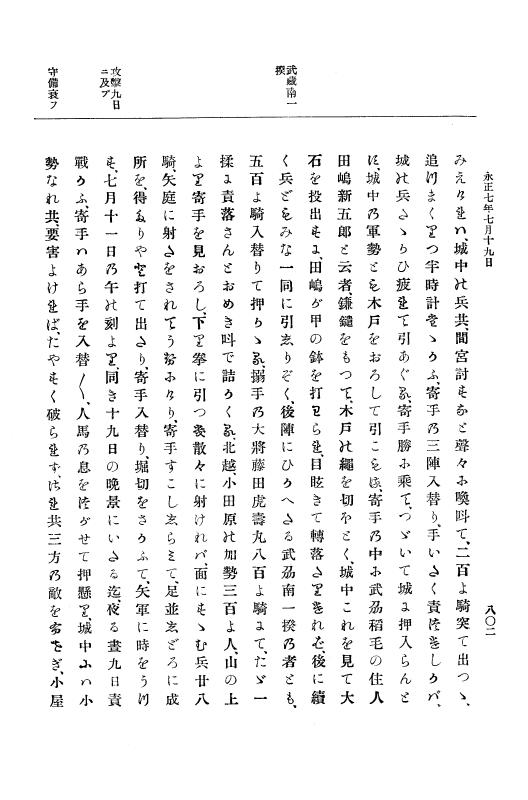 永正七年七月十九日
八〇二
みえけれハ、城中の兵共、間宮討もなと聲々ふ喚叫て、二百よ騎突て出つゝ、
追けまくりつ半時計たゝうふ、寄手乃三陣入替り、手いたく責けきしうバ、
城の兵さゝりひ疲きて引あぐる、寄手勝ふ乘て、つゞいて城ま押入らんと
に、城中乃軍勢とも木戸をおろして引こもは、寄手乃中ふ武刕稻毛の住人
田嶋新五郎と云者鎌鑓をもつて、木戸の繩を切をとく、城中これを見て大
石を投出もま、田嶋ダ甲の鉢を打きらき、目眩きて轉落さりきれむ、後に續
く兵どもみな一同に引えりぞく、後陣にひりへさる武刕南一揆乃者とも、
五百よ騎入替りて押りゝる、搦手乃大將藤田虎壽丸八百よ騎まて、たゞ一
揉ま責落さんとおめき叫で詰うくる、北越、小田原の加勢三百よ人、山の上
よ里寄手を見おろし、下里拳に引つめ散々に射けれバ、面にもゝむ兵廿八
騎、矢庭に射さをされてうおふけり、寄手すこしゑらミて、足並ゑどろに成
所を、得たりやと打て出さり、寄手入替り、堀切をさうふて、矢軍に時をうけ
も、七月十一日乃午の刻よ里、同き十九日の晩景にいさる迄、夜る晝九日責
戰うふ、寄手ハあら手を入替〳〵、人馬乃息をはがせて押懸里、城中ふハ小
勢なれ共、要害よければ、たやもく破られす、され共三方乃敵をふせぎ、小屋
武藏南一
揆
攻擊九日
ニ及ブ
守備衰フ